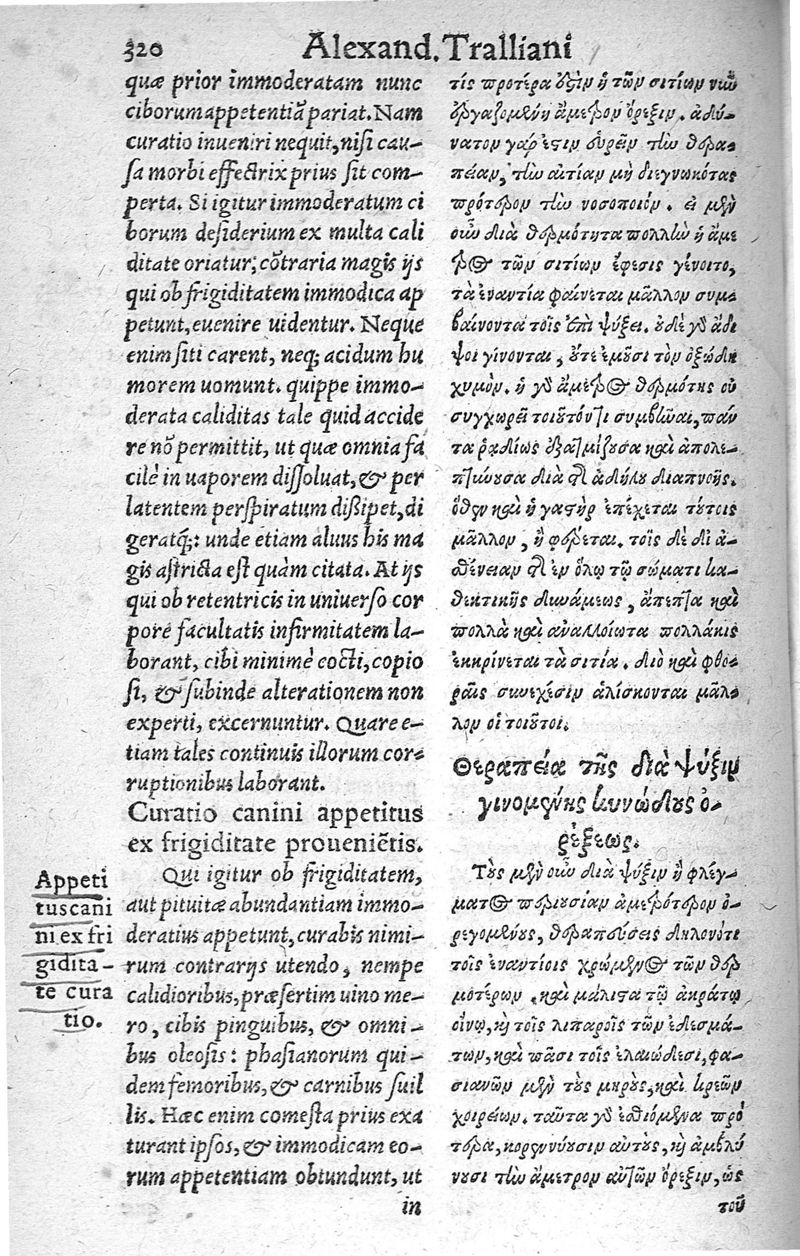 320 Alexand. Tralliani
quæ prior immoderatam nunc
ciborum appetentiã pariat. Nam
curatio inueniri nequit, nisi cau-
sa morbi effectrix prius sit com-
perta. Si igitur immoderatum ci
borum desiderium ex multa cali
ditate oriatur, cõtraria magis ijs
qui ob frigiditatem immodica ap
petunt, euenire uidentur. Neque
enim siti carent, neq; acidum hu
morem uomunt. quippe immo-
derata caliditas tale quid accide
re nõ permittit, ut quæ omnia fa
cilè in uaporem dissoluat, & per
latentem perspiratum dißipet, di
geratq́;: unde etiam aluus his ma
gis astricta est quàm citata. At ijs
qui ob retentricis in uniuerso cor
pore facultatis infirmitatem la-
borant, cibi minimè cocti, copio
si, & subinde alterationem non
experti, excernuntur. Quare e-
tiam tales continuis illorum cor-
ruptionibus laborant.
Curatio canini appetitus
ex frigiditate proueniẽtis.
Qui igitur ob frigiditatem,
aut pituitæ abundantiam immo-
deratius appetunt, curabis nimi-
rum contrarijs utendo, nempe
calidioribus, præsertim uino me-
ro, cibis pinguibus, & omni-
bus oleosis: phasianorum qui-
dem femoribus, & carnibus suil
lis. Hæc enim comesta prius exa
turant ipsos, & immodicam eo-
rum appetentiam obtundunt, ut
in
Appeti
tus cani
ni ex fri
gidita-
te cura
tio.
τίς προτέρα ὅτιν ἡ τῶν σιτίων νῦν
ἐργαζομένη ἄμετρον ὄρεξιν. ἀδύ-
νατον γάρ ἐστιν εὑρεῖν τὴν θερα-
πείαν, τὴν αἰτίαν μὴ διεγνωκότας
πρότερον τὴν νοσοποιόν. εἰ μὲν
οὖν διὰ θερμότητα πολλὴν ἡ ἄμε
τρος τῶν σιτίων ἔφεσις γένοιτο,
τὰ ἐναντία φαίνεται μᾶλλον συμ-
βαίνοντα τοῖς ἐπὶ ψύξει. οὐδὲ γὰρ ἄδι
ψοι γίνονται, οὔτε ἐμοῦσι τὸν ὀξώδη
χυμόν. ἡ γὰρ ἄμετρος θερμότης οὐ
συγχωρεῖ τοιοῦτόν τι συμβῆναι, πάν
τα ῥᾳδίως ἐξατμίζουσα καὶ ἀπολε-
πτύνουσα διὰ τῆς ἀδήλου διαπνοῆς.
ὅθεν καὶ ἡ γαστὴρ ἐπέχεται τούτοις
μᾶλλον, ἢ φέρεται. τοῖς δὲ δι ἀ-
σθένειαν τῆς ἐν ὅλῳ τῷ σώματι κα-
θεκτικῆς δυνάμεως, ἄπεπτα καὶ
πολλὰ καὶ ἀναλλοίωτα πολλάκις
ἐκκρίνεται τὰ σιτία. διὸ καὶ φθο-
ραῖς συνεχέσιν ἁλίσκονται μᾶλ-
λον οἱ τοιοῦτοι.
Θεραπεία τῆς διὰ ψύξιν
γινομένης κυνώδους ὀ-
ρέξεως.
Τοὺς μὲν οὖν διὰ ψύξιν ἢ φλέγ-
ματος περιουσίαν ἀμετρότερον ὀ-
ρεγομένους, θεραπεύσεις δηλονότι
τοῖς ἐναντίοις χρώμενος τῶν θερ
μοτέρων. καὶ μάλιστα τῷ ἀκράτῳ
οἴνῳ, καὶ τοῖς λιπαροῖς τῶν ἐδεσμά-
των, καὶ πᾶσι τοῖς ἐλαιώδεσι, φα-
σιανῶν μὲν τοὺς μηροὺς, καὶ κρεῶν
χοιρείων. ταῦτα γὰρ ἐσθιόμενα πρό
τερα, κορεννύουσιν αὐτοὺς, καὶ ἀμβλύ
νουσι τὴν ἄμετρον αὐτῶν ὄρεξιν, ὡς
τοῦ